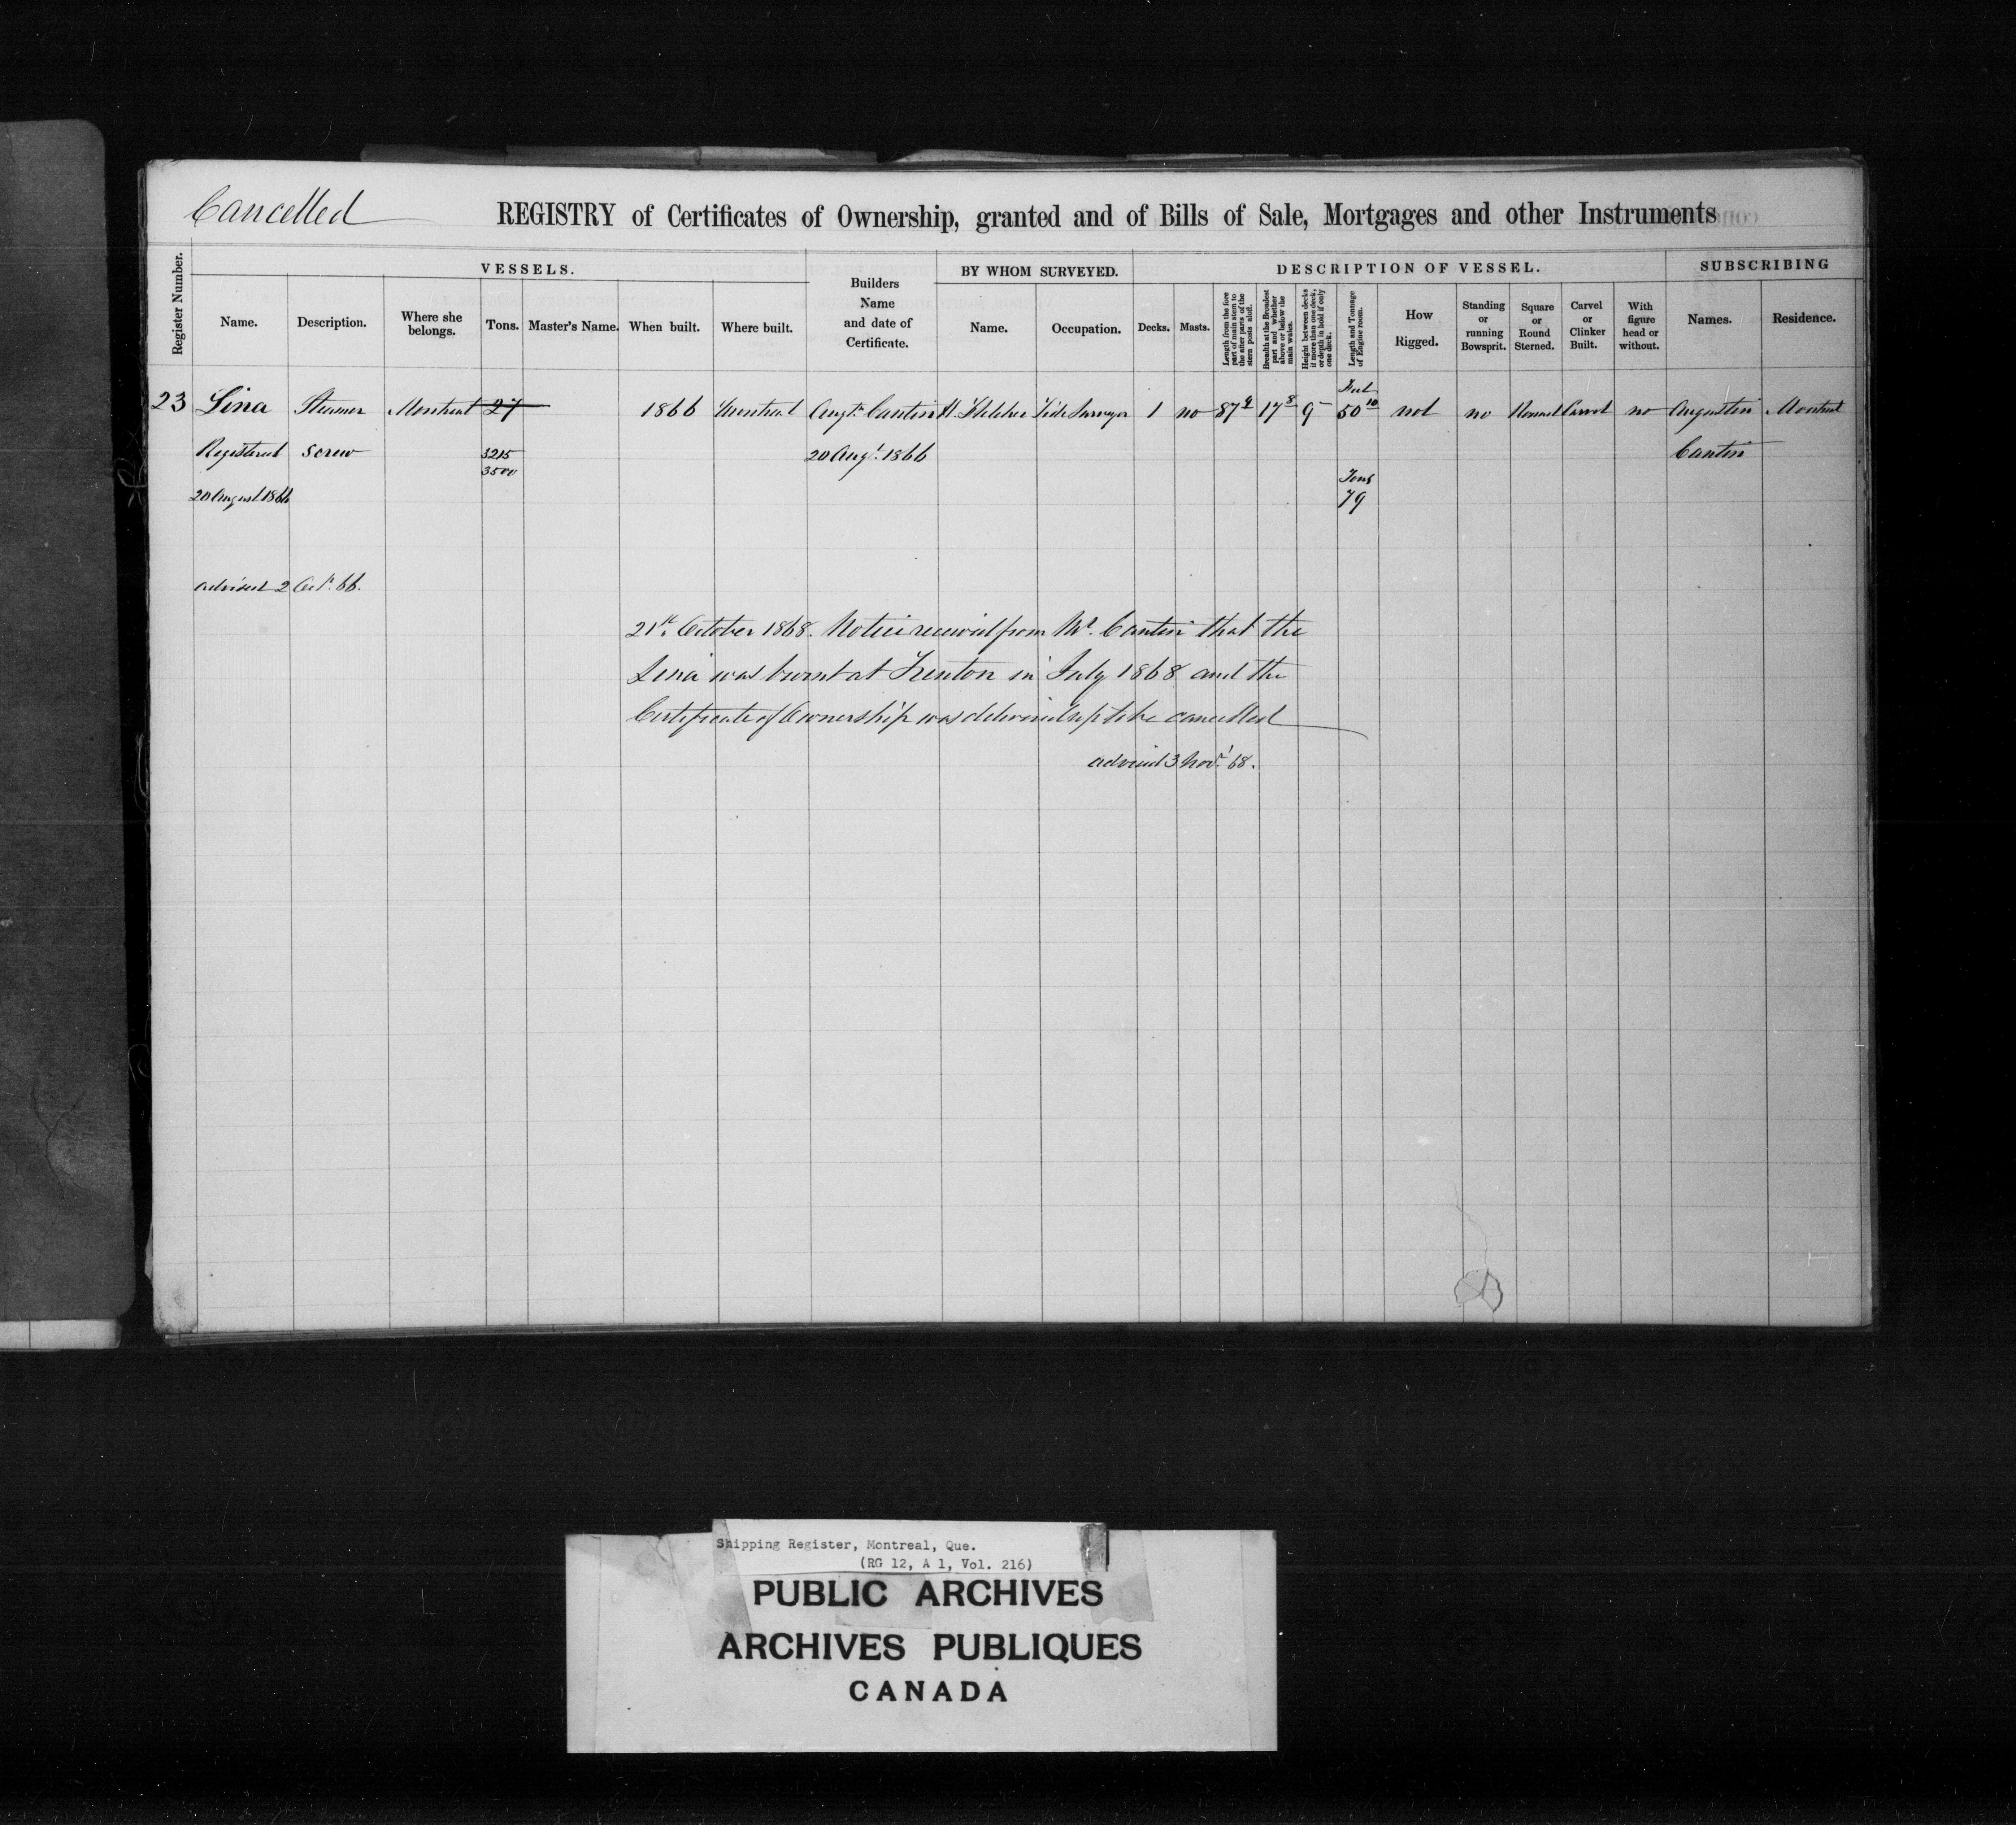 Cancelled
REGISTRY of Certificates of Ownership, granted and of Bills of Sale, Mortgages and other Instruments
Register Number.
VESSELS.
Builders Name and date of Certificate.
BY WHOM SURVEYED.
DESCRIPTION OF VESSEL.
SUBSCRIBING
Name.
Description.
Where she belongs.
Tons.
Master's Name.
When built.
Where built.
Name.
Occupation.
Decks.
Masts.
Length from the fore part of main stem to the after parts of the stern posts aloft.
Breadth at the Broadest part and whether above or below the main wales.
Height between decks if more than one deck, or depth in hold if only one deck.
Length and Tonnage of Engine room.
How Rigged.
Standing or running Bowsprit.
Square or Round Sterned.
Carvel or Clinker Built.
With figure head or without.
Names.
Residence.
Feet
23 Lina Steamer Montreal 27 1866 Montreal Augtn Cantin H. Tide Surveyor 1 no 87 17 8 9 50 10 not no Round Carvel no Augustin Montreal
Registered screw 3215 20 Augt. 1866 Cantin
3500
20 August 1866 Tons
79
advised 2 Oct. 66.
21st October 1868. Notice received from Mr. Cantin that the
Lina was burnt at Trenton in July 1868 and the
Certificate of Ownership was delivered up to be cancelled
advised 3 Novr. 68.
Shipping Register, Montreal, Que.
(RG 12, A 1, Vol. 216)
PUBLIC ARCHIVES
ARCHIVES PUBLIQUES
CANADA